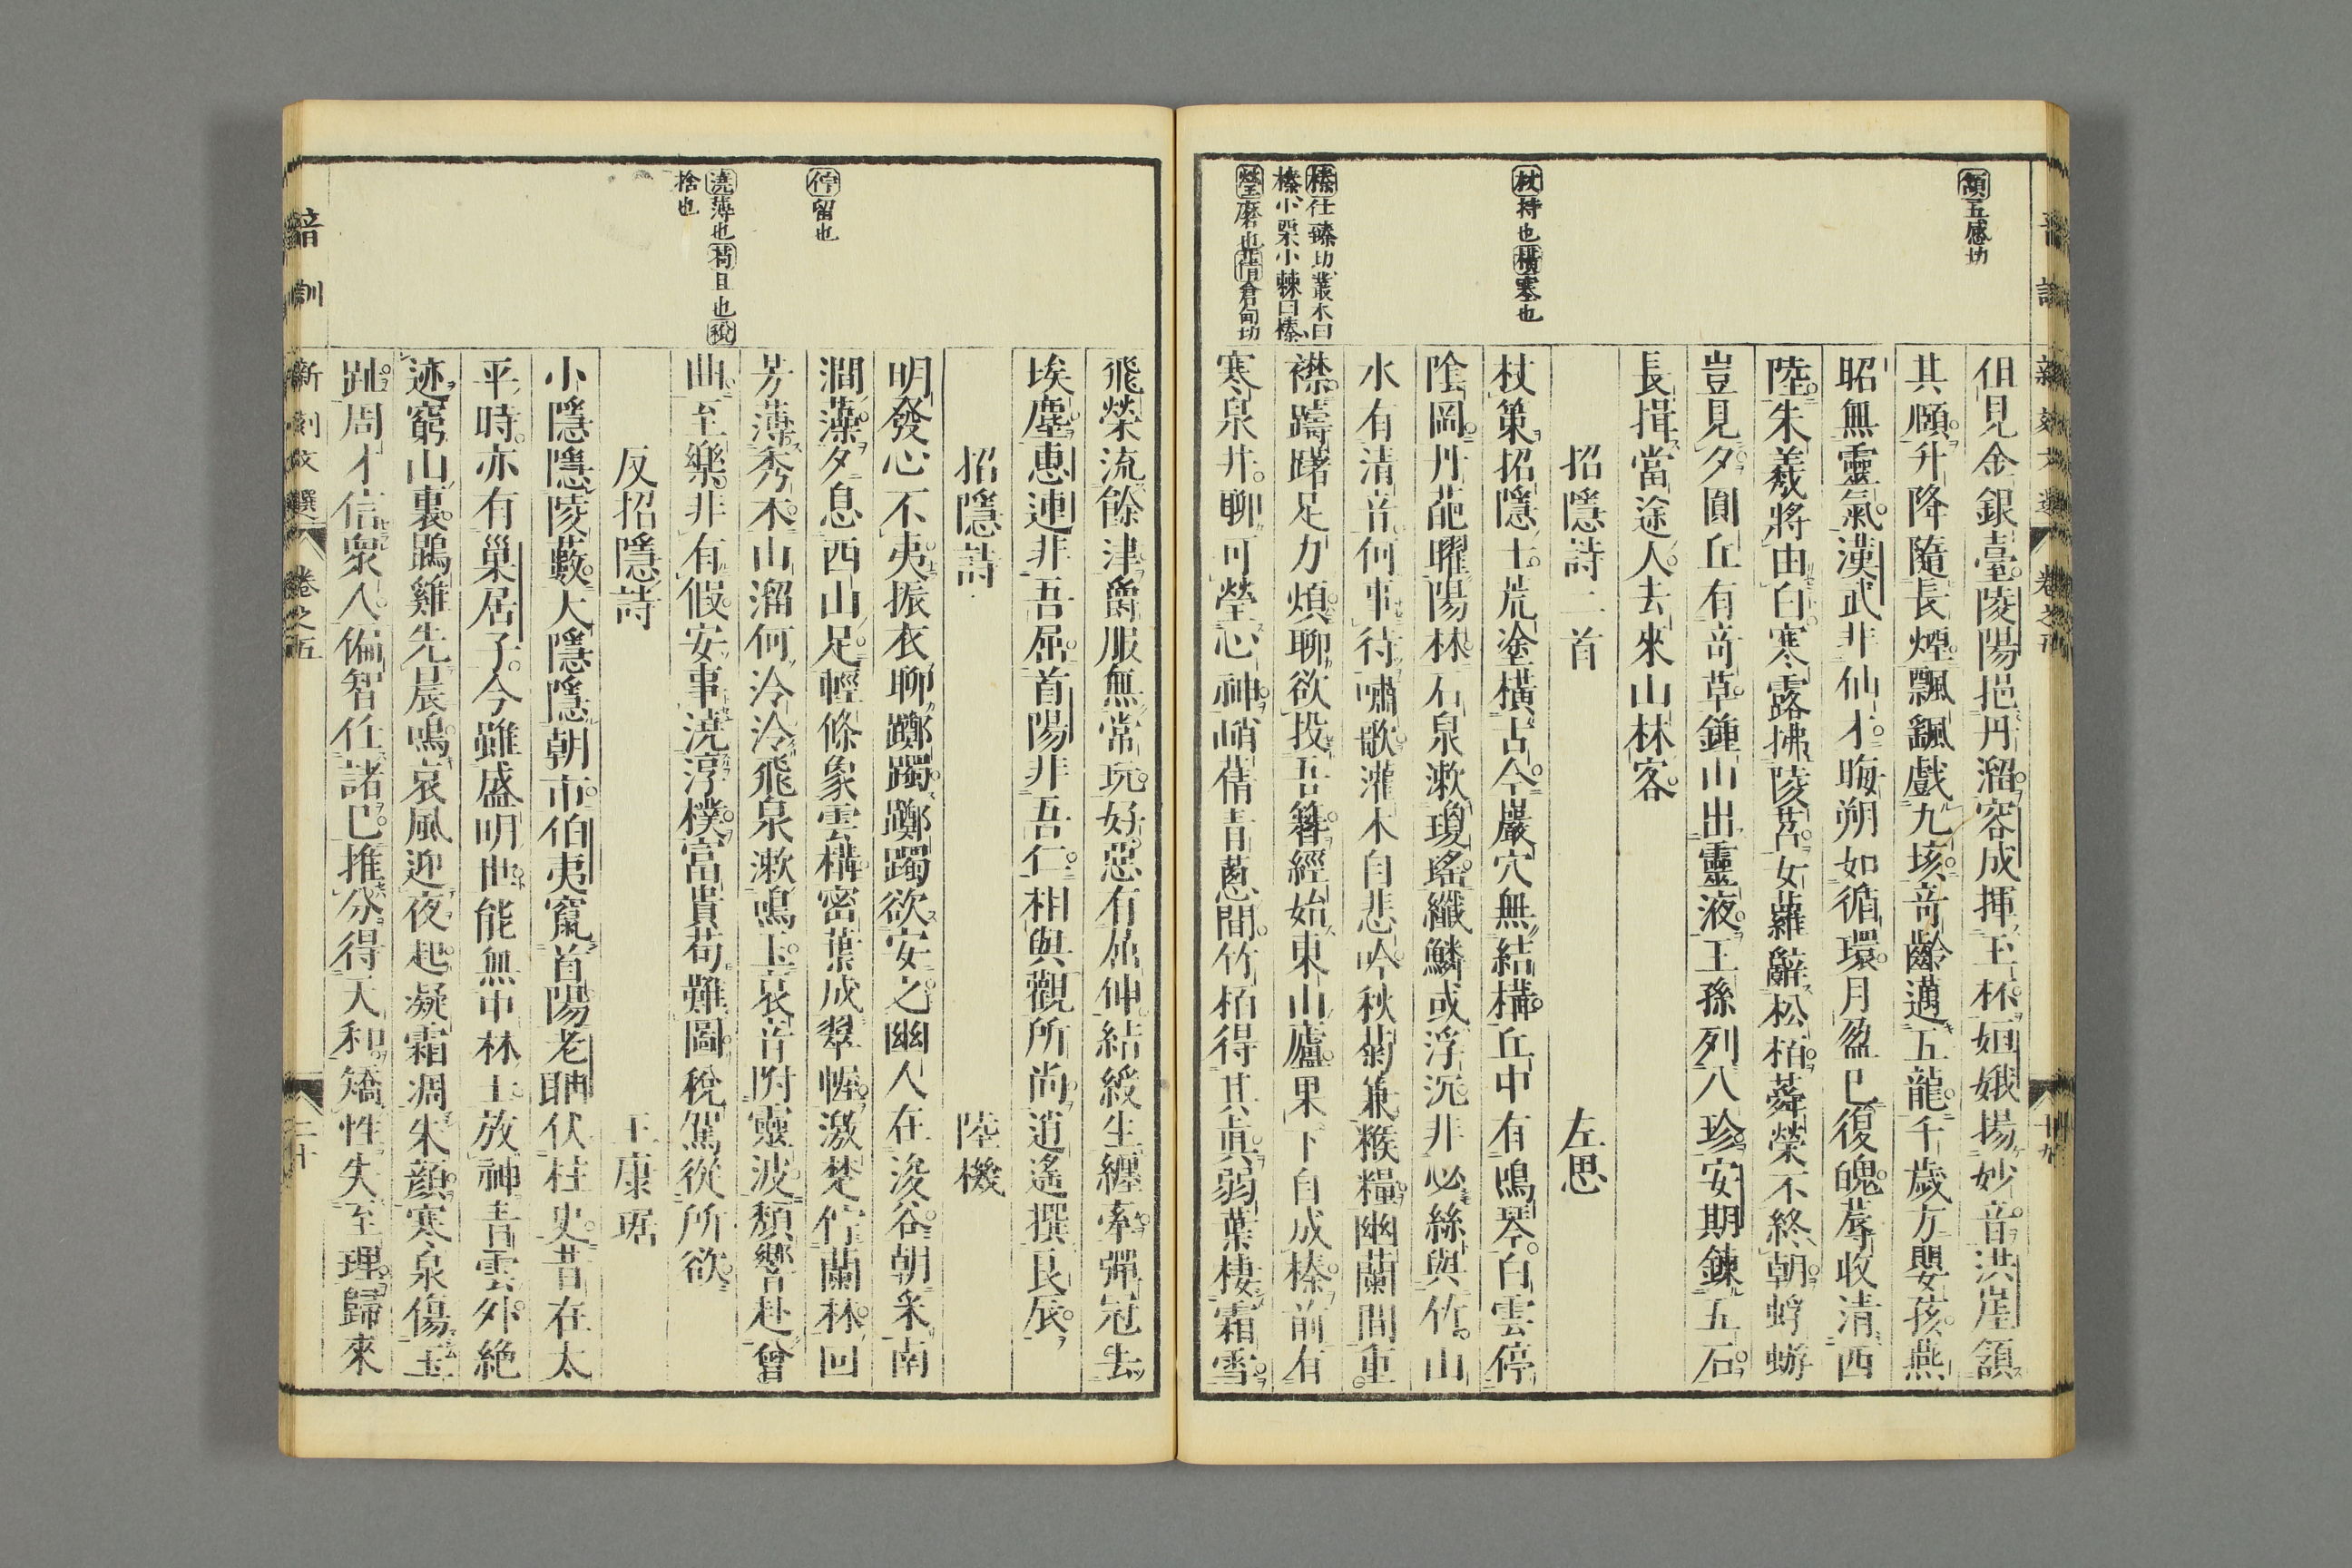 頷五感切
但見金銀臺陵陽挹丹溜容成揮玉杯姮娥揚妙音洪崖頷
其頤升降隨長煙飄飄戲九垓竒齡邁五龍千歲方嬰孩燕
昭無靈氣漢武非仙才晦朔如循環月盈已復魄蓐收清西
陸朱羲將由白寒露拂陵苕女蘿辭松栢蕣榮不終朝蜉蝣
豈見夕圓丘有竒草鍾山出靈液王孫列八珍安期鍊五石
長揖當途人去來山林客
招隱詩二首　左思
杖持也橫塞也
杖策招隱士荒塗橫古今巖穴無結構丘中有鳴琴白雲停
陰岡丹葩曜陽林石泉漱瓊瑤纖鱗或浮沉非必絲與竹山
水有清音何事待嘯歌灌木自悲吟秋菊兼糇糧幽蘭間重
榛仕臻切叢木曰
榛小栗小棘曰榛
襟躊躇足力煩聊欲投吾簪經始東山廬果下自成榛前有
瑩磨也蒨倉甸切
寒泉井聊可瑩心神峭蒨青葱間竹栢得其真弱葉棲霜雪
飛榮流餘津爵服無常玩好惡有屈伸結綬生纏牽彈冠去
埃塵惠連非吾屈首陽非吾仁相與觀所尚逍遙撰良辰
招隱詩　陸機
明發心不夷振衣聊躑躅躑躅欲安之幽人在浚谷朝采南
佇留也
澗藻夕息西山足輕條象雲構密葉成翠幄激楚佇蘭林回
芳薄秀木山溜何泠泠飛泉漱鳴玉哀音附靈波頹響赴曾
澆薄也苟且也稅
捨也
曲至樂非有假安事澆淳樸富貴苟難圖稅駕從所欲
反招隱詩　王康琚
小隱隱陵藪大隱隱朝市伯夷竄首陽老聃伏柱史昔在太
平時亦有巢居子今雖盛明世能無中林士放神青雲外絶
迹窮山裏鵾雞先晨鳴哀風迎夜起凝霜凋朱顏寒泉傷玉
趾周才信衆人偏智任諸己推分得天和矯性失至理歸來
音訓　新刻文選　卷之五　二十